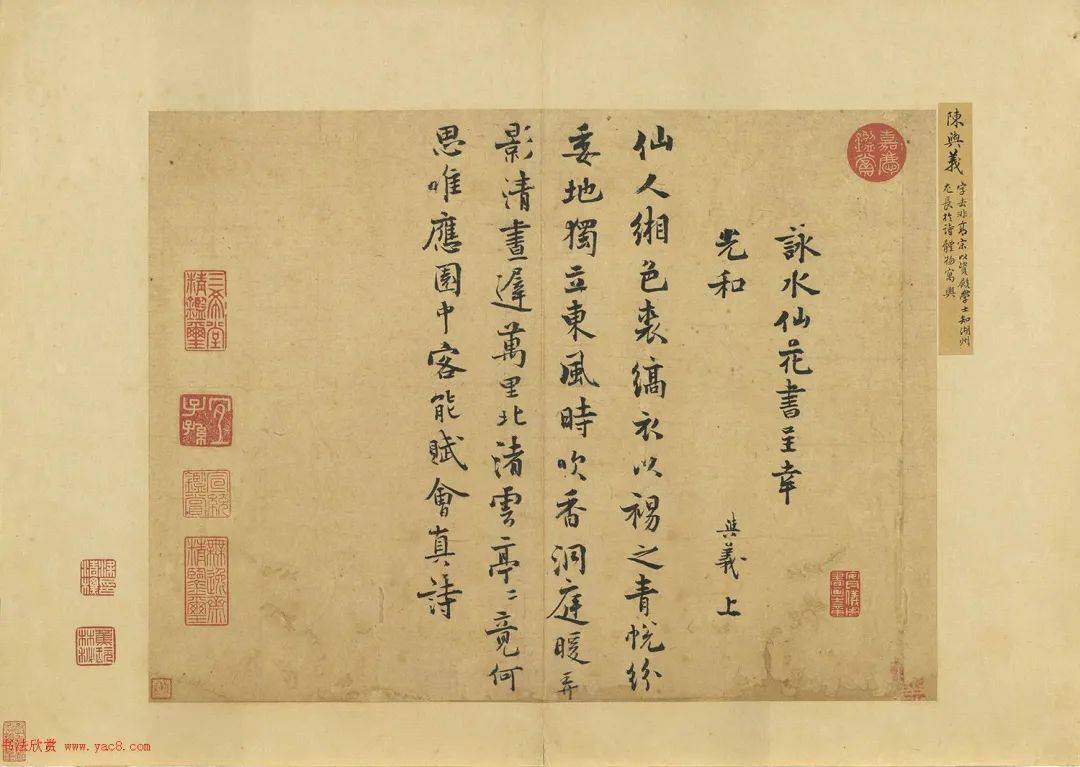 陳與義
字去非高宗以資殿學士知湖州
尤長於詩體物寓興
詠水仙花書呈幸
光和
與義上
仙人緗色裘縞衣以裼之青帨紛
委地獨立東風時吹香洞庭暖弄
影清晝遲萬里北渚雲亭〻竟何
思唯應園中客能賦會真詩
嘉慶鑑賞
三希堂精鑑璽
宜子孫
书法欣赏 www.yac8.com